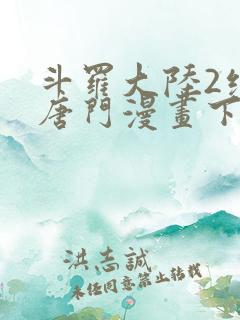 斗羅大陸2
唐門漫畫下
洪志誠
未任同意禁止转载